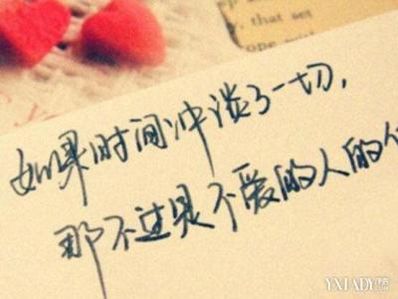 that set
如果时间冲淡了一切，
那不过是不爱的人的
YXLADY